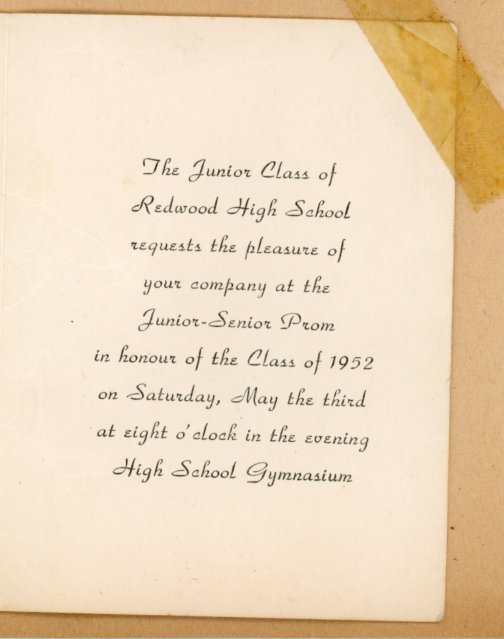 The Junior Class of
Redwood High School
requests the pleasure of
your company at the
Junior-Senior Prom
in honour of the Class of 1952
on Saturday, May the third
at eight o'clock in the evening
High School Gymnasium